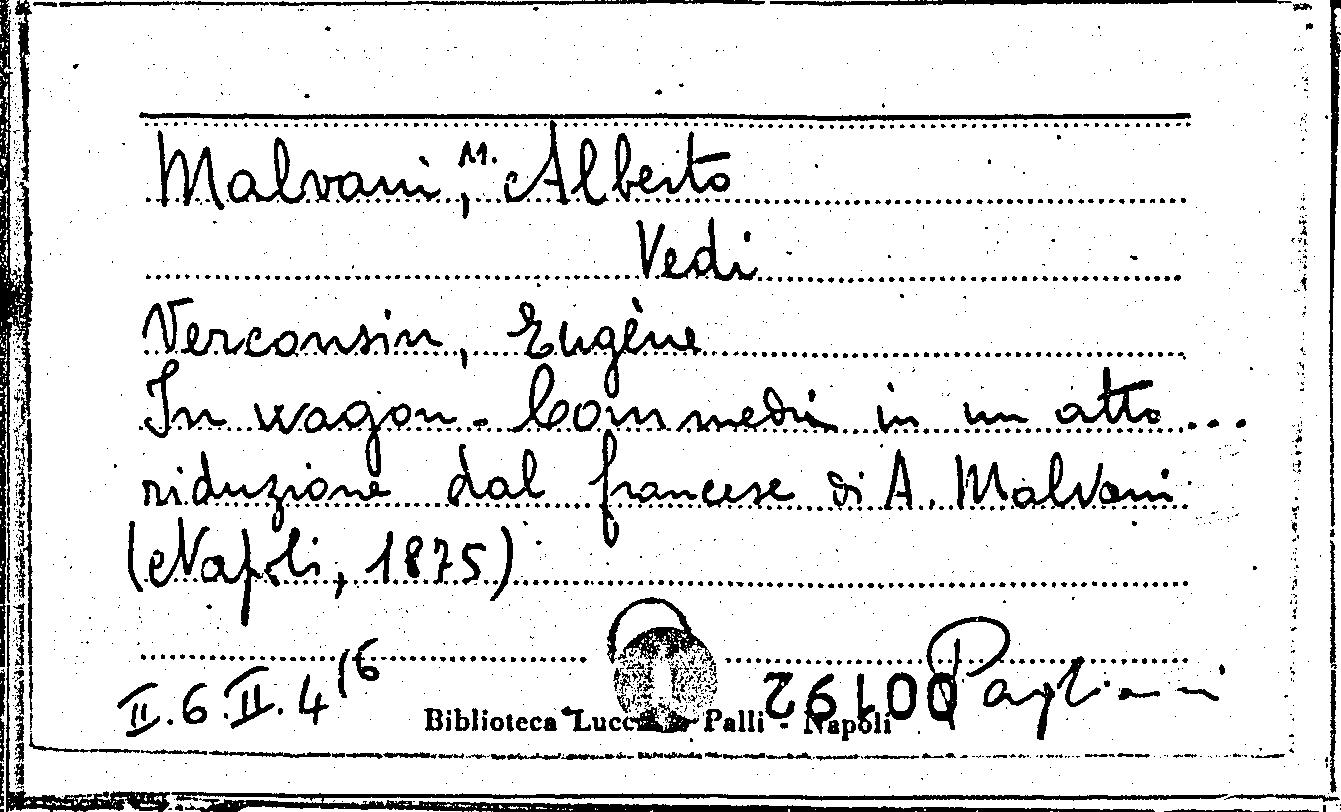 Malvani, M. Alberto
Vedi
Verconsin, Eugène
In wagon - Commedia in un atto ...
riduzione dal francese di A. Malvani
(Napoli, 1875)
II.6.II.4/6
Biblioteca Lucchesi Palli - Napoli
00192
Pagliani